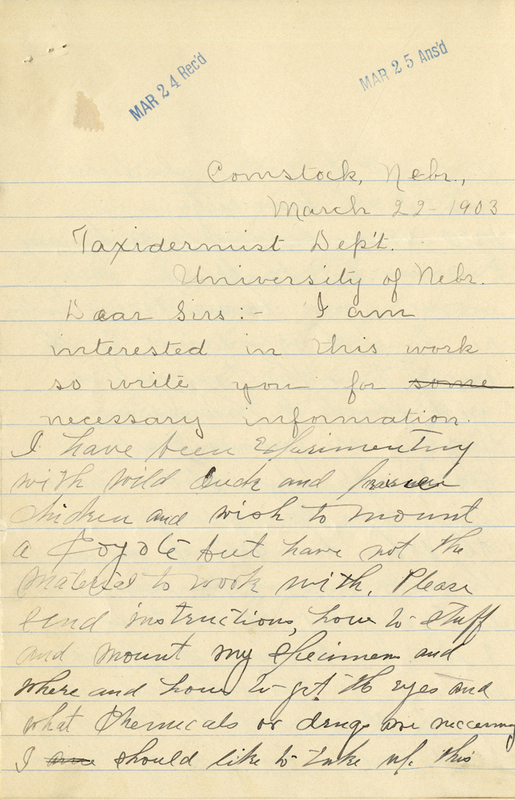 MAR 24 Rec'd
MAR 25 Ans'd
Comstock, Nebr.,
March 22-1903
Taxidermist Dep't.
University of Nebr.
Dear Sirs:- I am
interested in this work
so write you for some
necessary information.
I have been experimenting
with wild duck and
chicken and wish to mount
a Coyote but have not the
material to work with. Please
send instructions, how to stuff
and mount my specimen and
where and how to get the eyes and
what Chemicals or drugs are neccessary
I am should like to take up this